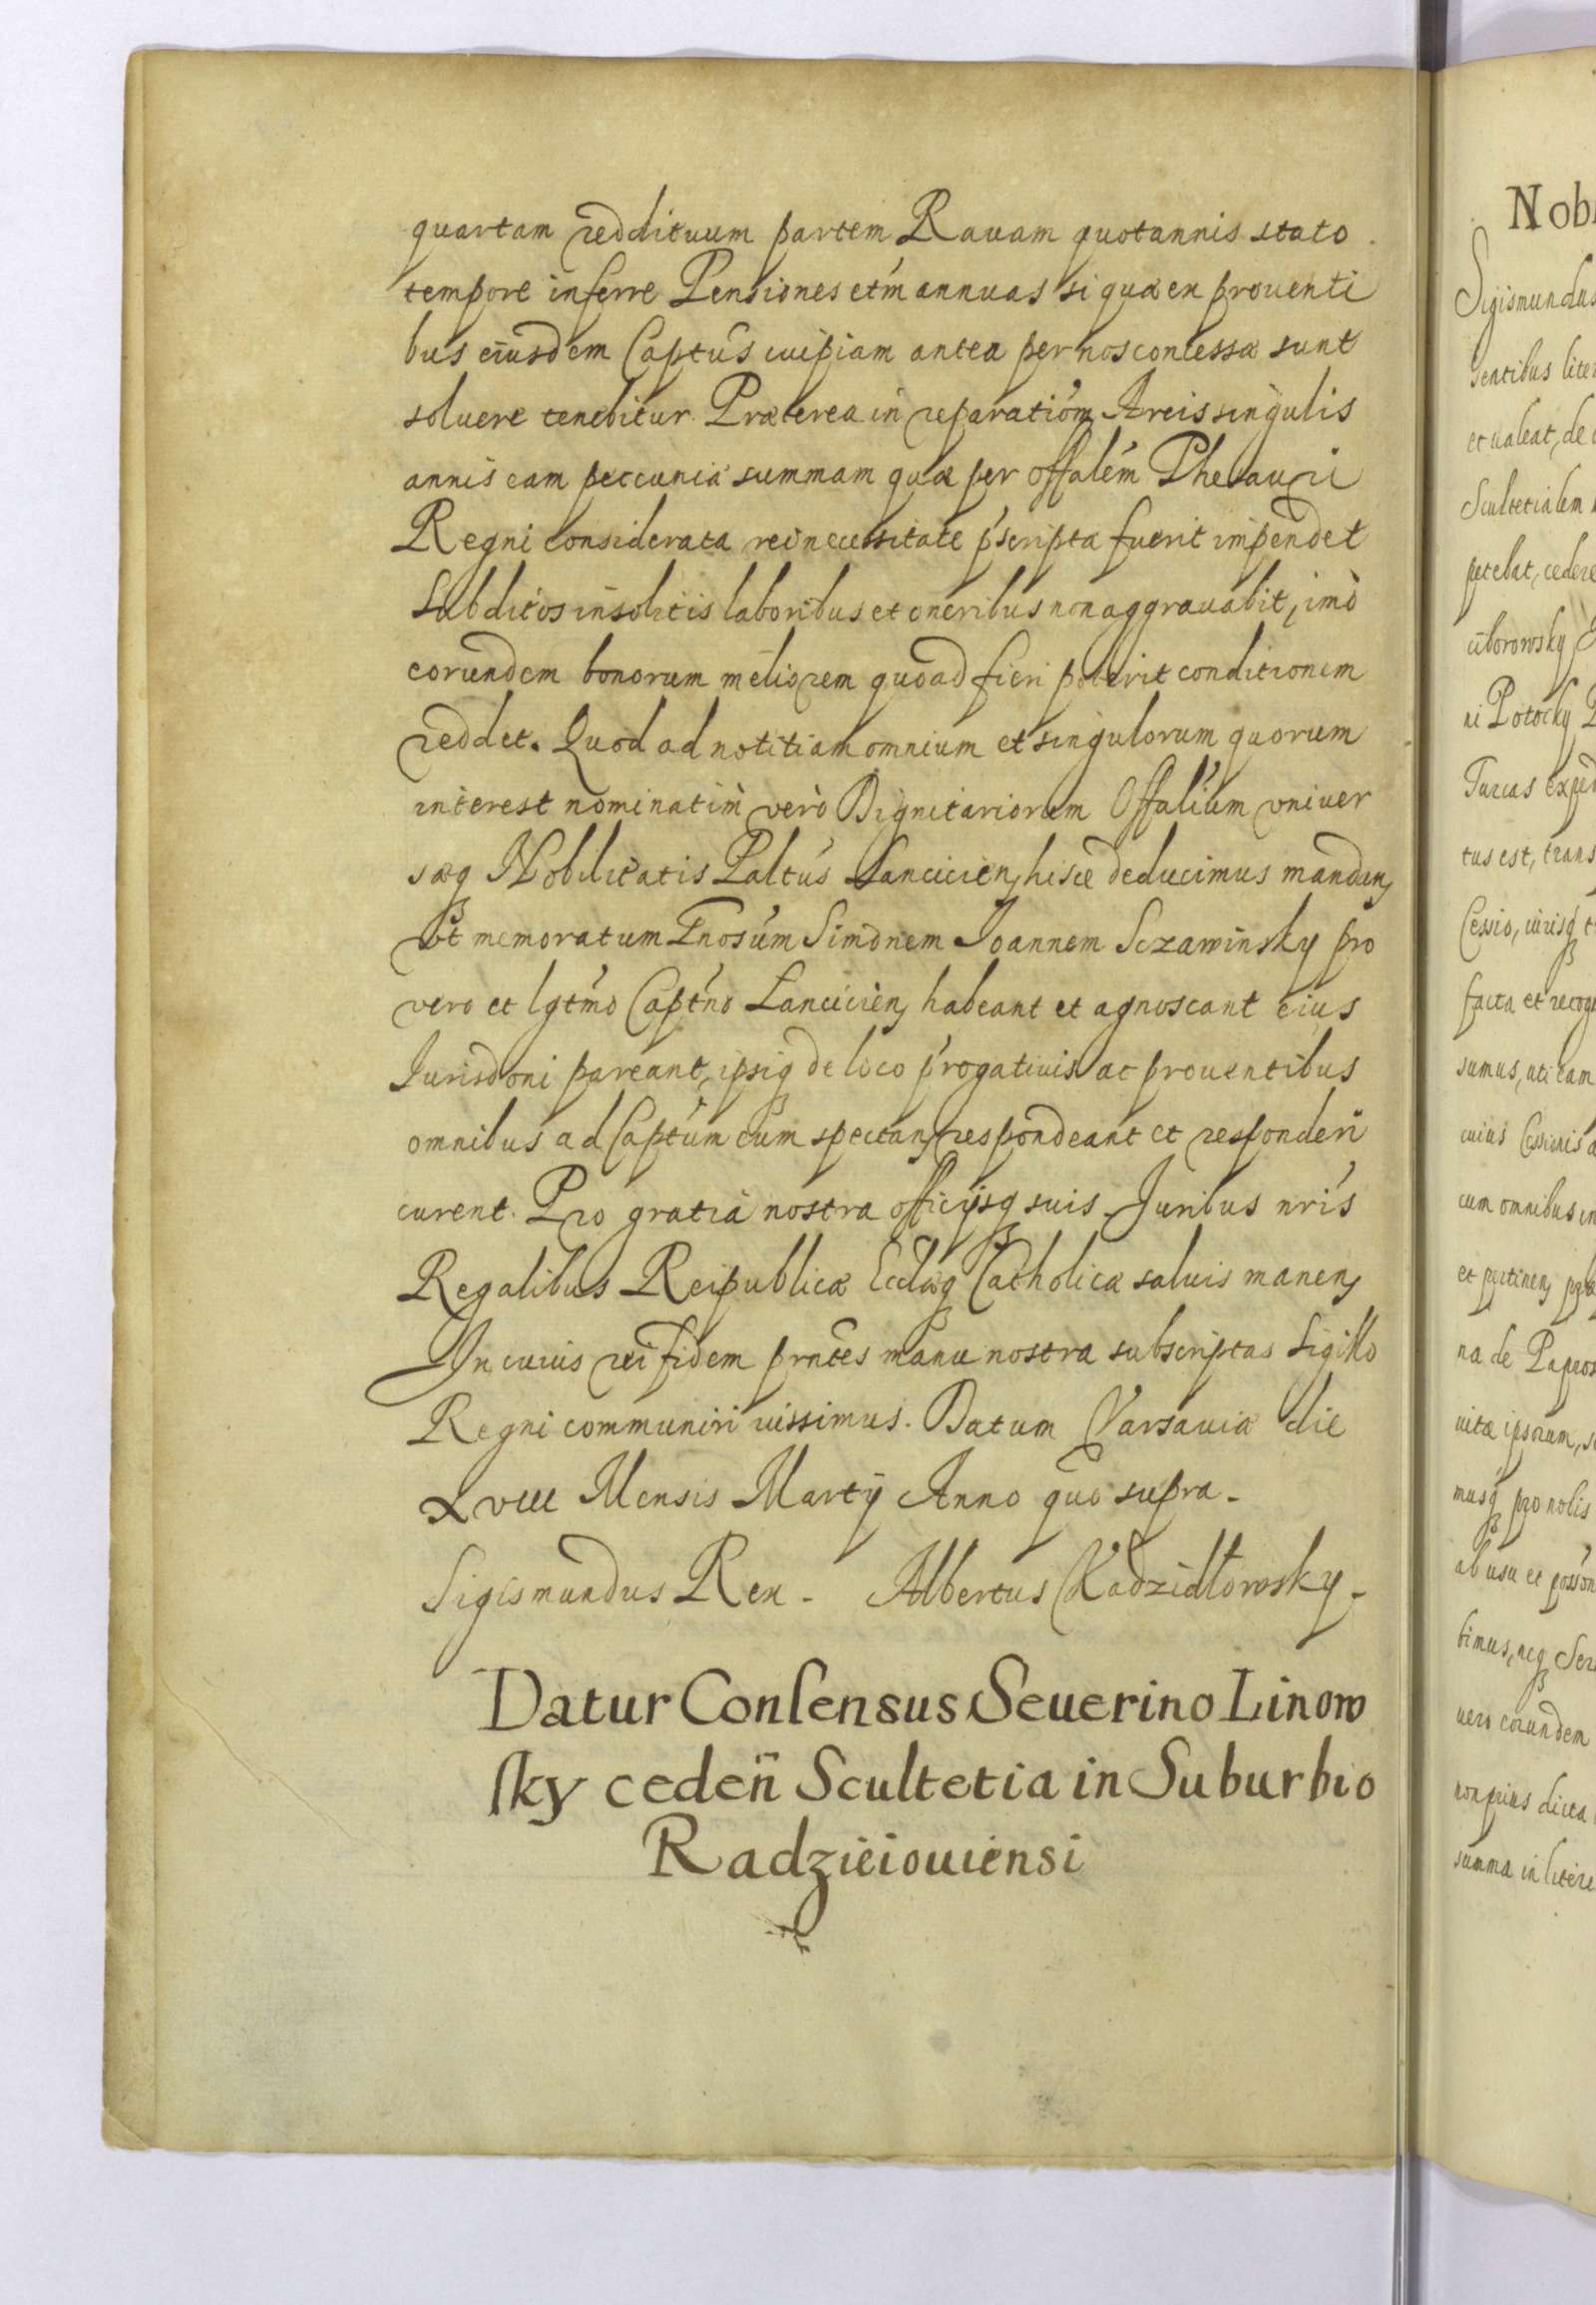 quartam reddituum partem Rauam quotannis stato
tempore inferre Pensiones etm annuas si quæ ex prouenti
bus eiusdem Captus cuipiam antea per nos concessæ sunt
soluere tenebitur. Præterea in reparationem Arcis singulis
annis eam peccuniæ summam quæ per Offalem Thesauri
Regni considerata rei necessitate pscripta fuerit impendet
Subditos insolitis laboribus et oneribus non aggrauabit, imò
eorundem bonorum meliorem quoad fieri poterit conditionem
reddet. Quod ad notitiam omnium et singulorum quorum
interest nominatim verò Dignitariorum Offalium vniuer
sæq Nobilitatis Paltus Lancicien hisce deducimus mandan
vt memoratum Gnosum Simonem Joannem Sczawinsky pro
vero et lgtmo Captno Lancicien habeant et agnoscant eius
Jurisdoni pareant, ipsiq de loco progatiuis ac prouentibus
omnibus ad Captum eum spectan respondeant et responderi
curent. Pro gratia nostra officijsq suis Juribus nris
Regalibus Reipublicæ Ecclæq Catholicæ saluis manen
In cuius rei fidem prntes manu nostra subscriptas Sigillo
Regni communiri iussimus. Datum Varsauiæ die
XVIII Mensis Martij Anno quo supra.
Sigismundus Rex. Albertus Kadzidłowsky.
Datur Consensus Seuerino Linow
sky ceden Scultetia in Suburbio
Radzieiouiensi
Nob
Sigismundus
sentibus liter
et ualeat, de
Scultetialem
petebat, cedere
ciborowsky
ni Potocky
Turcas exped
tus est, trans
Cessio, iurisq
facta et recog
sumus, uti eam
cuius Cessionis
cum omnibus in
et pertinen
na de Papros
uitæ ipsorum,
musq pro nobis
ab usu et posson
bimus, neq Ser
uero eorundem
non prius dicta
summa in litere